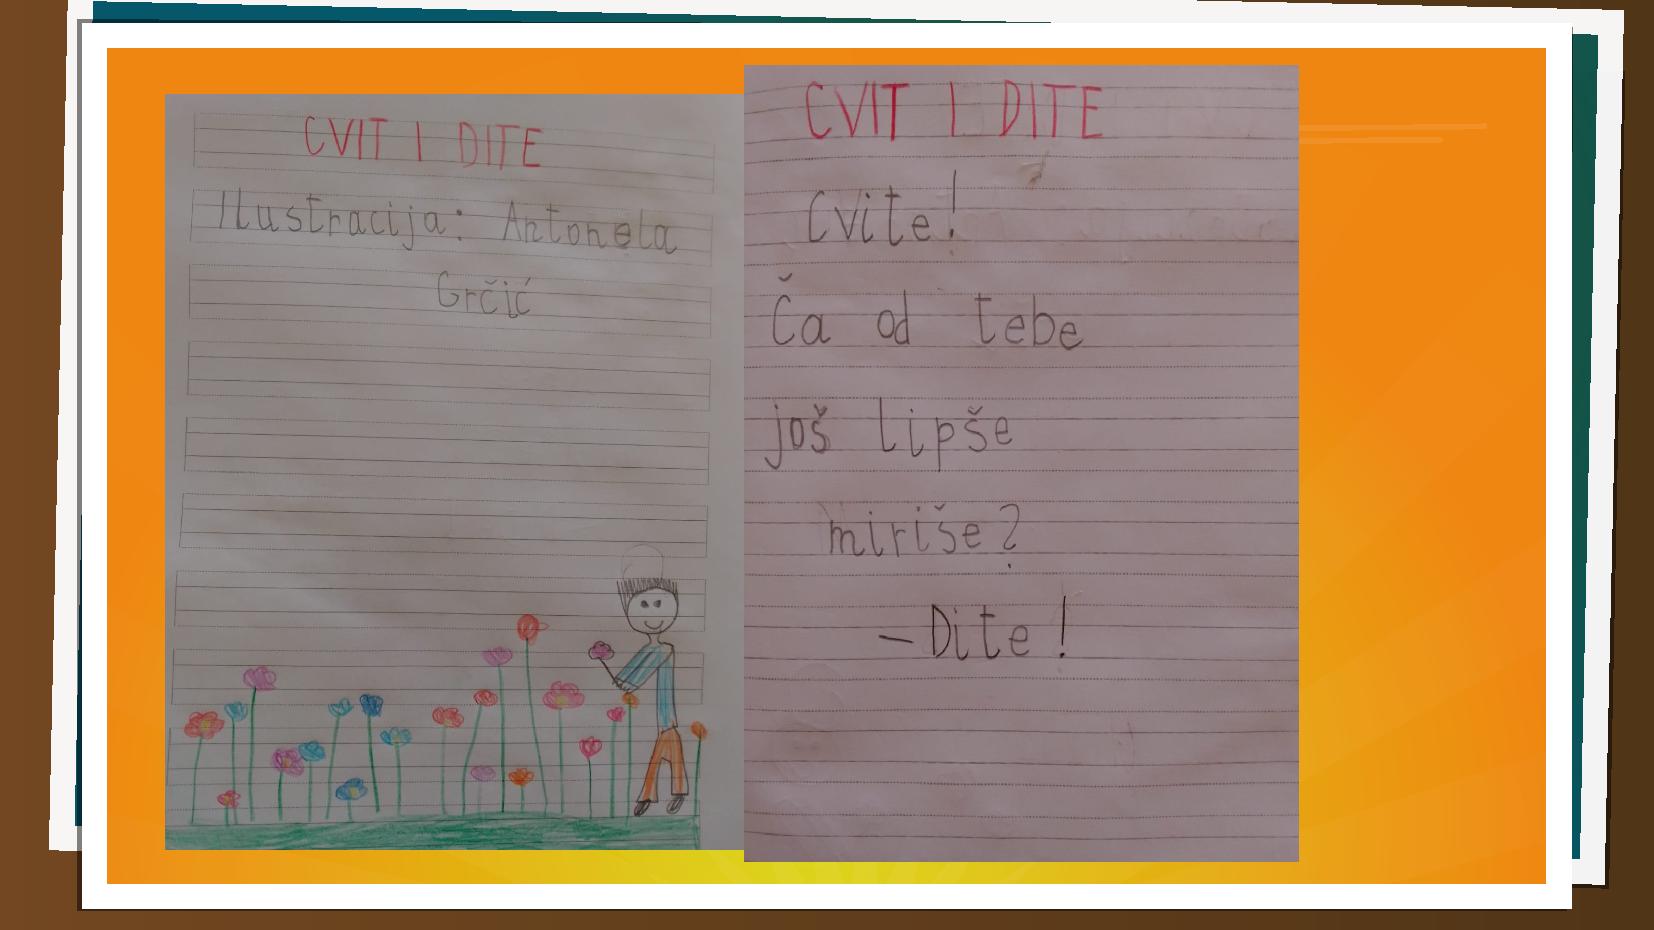 CVIT I DITE
Ilustracija: Antonela
Grčić
CVIT I DITE
Cvite!
Ča od tebe
još lipše
miriše?
- Dite!